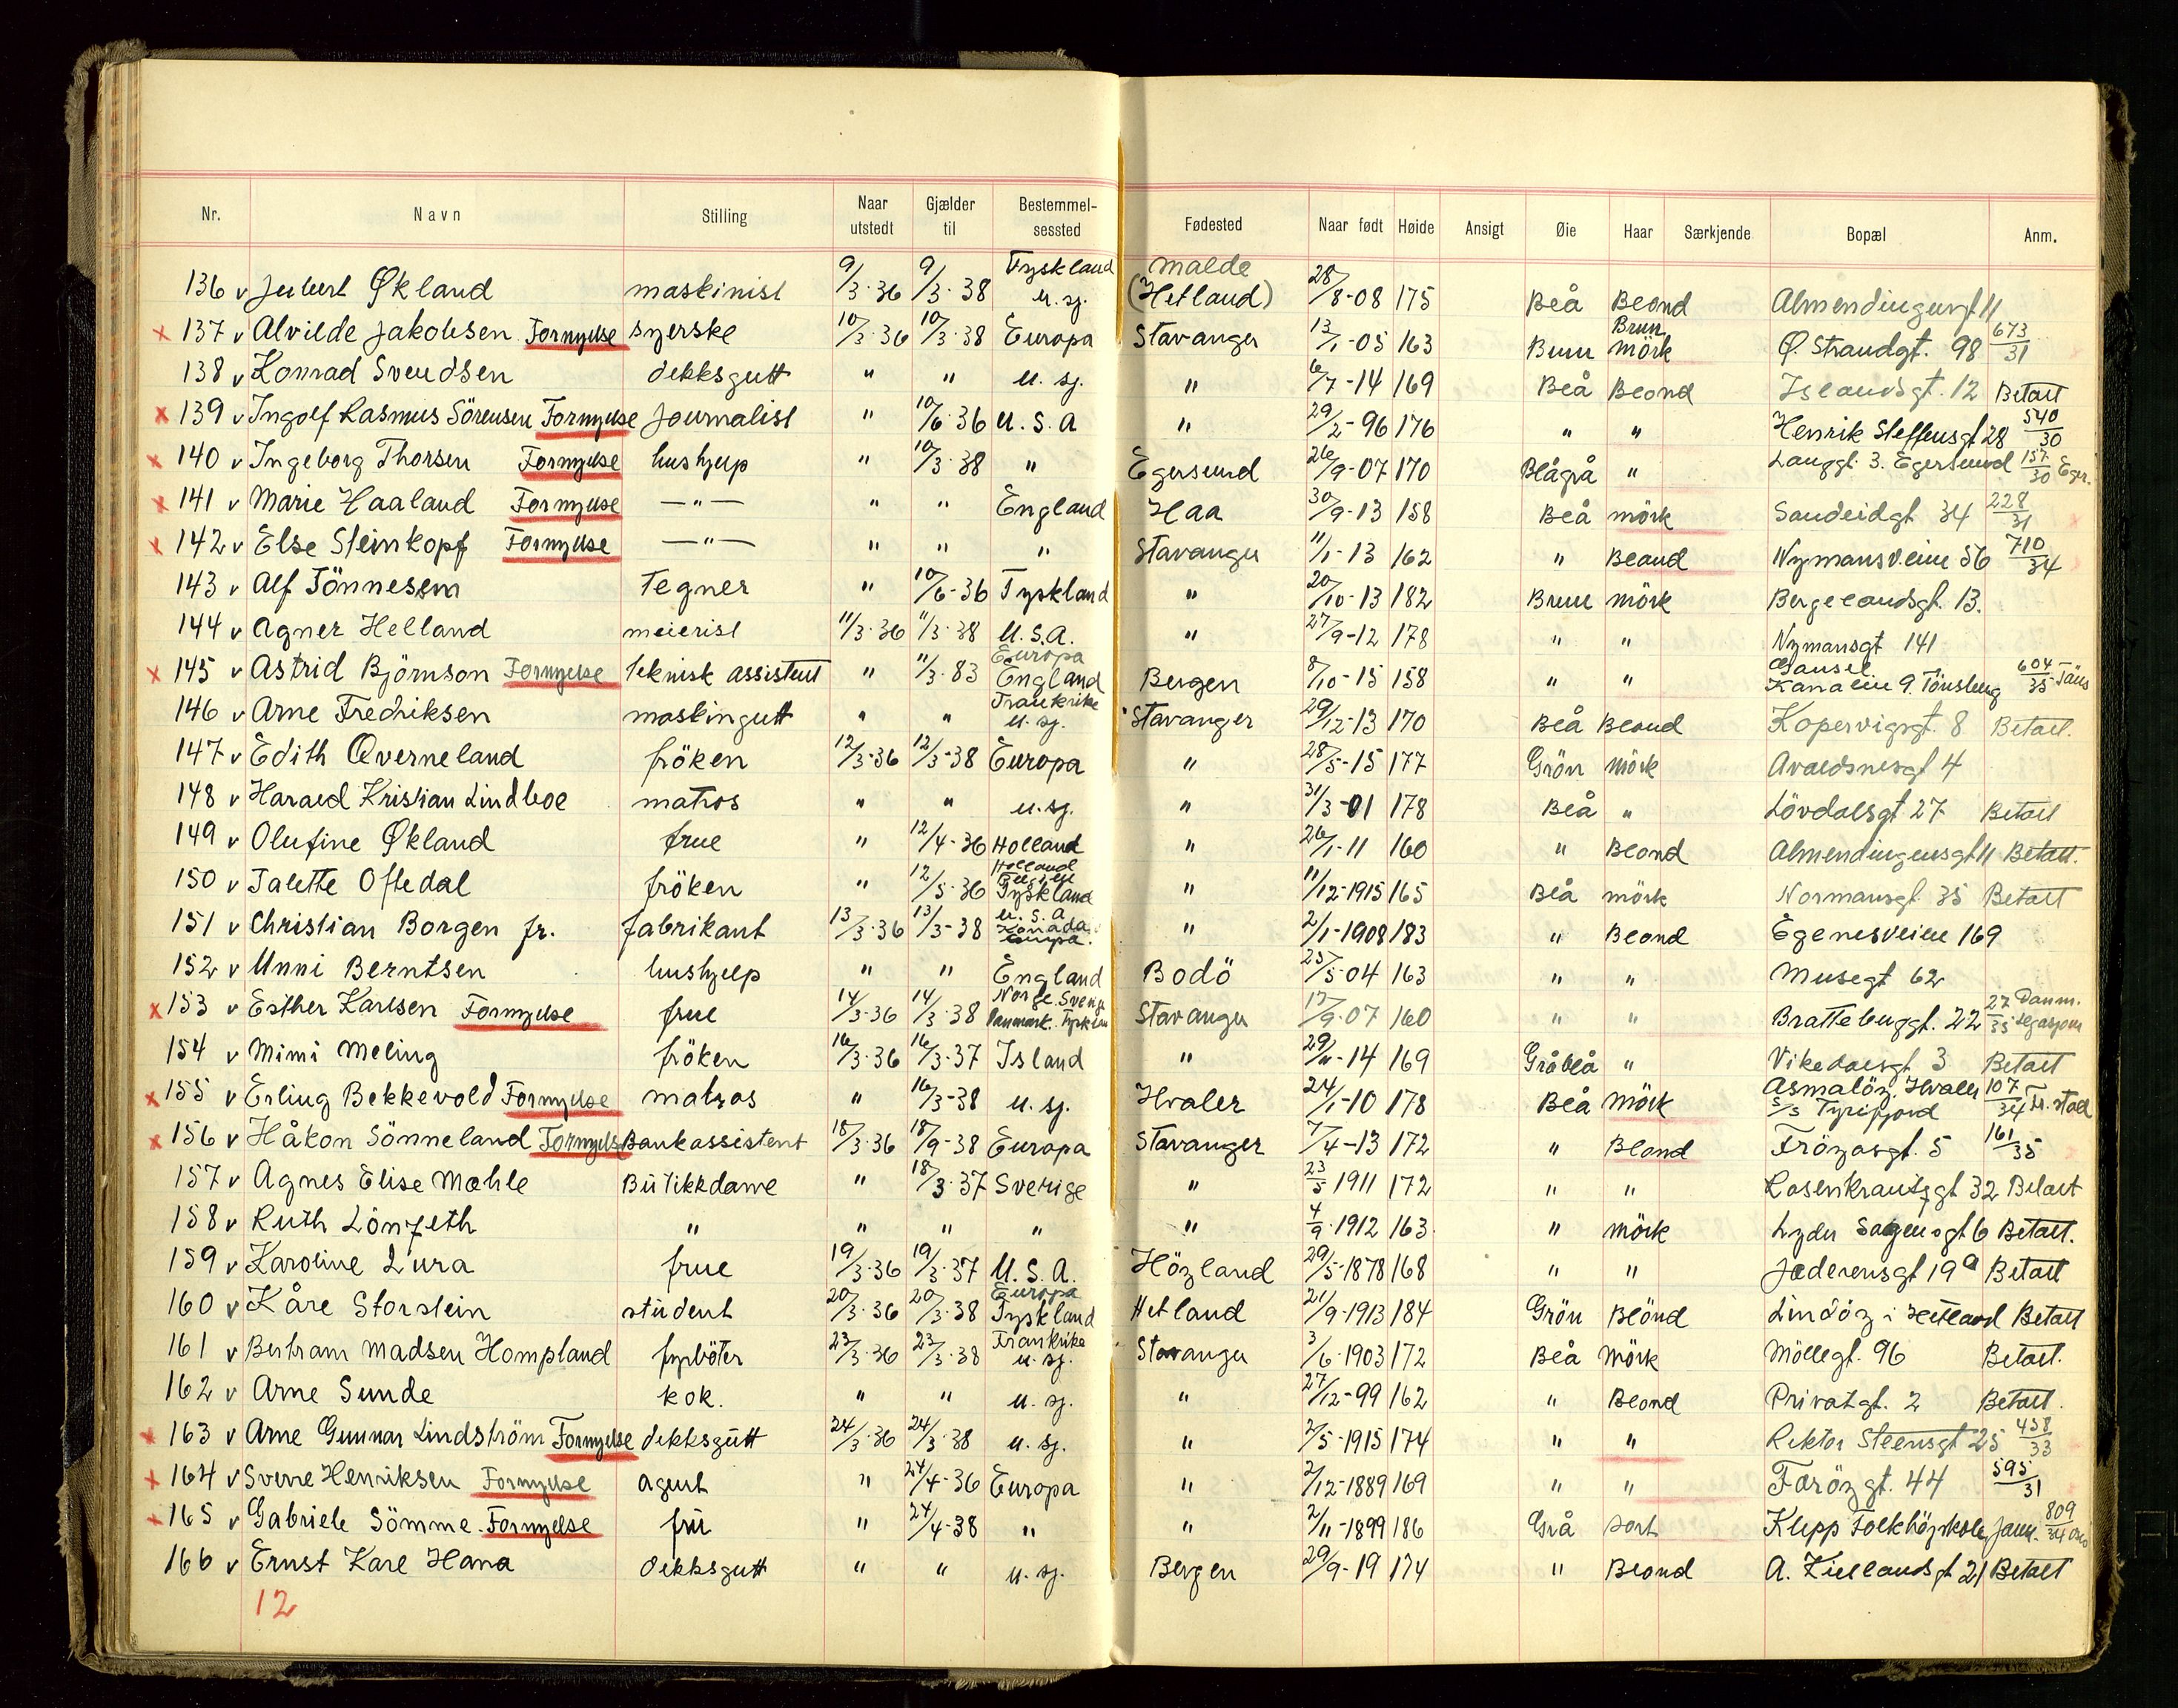 Nr. Navn Stilling Naar utstedt Gjælder til Bestemmel-sessted Fødested Naar født Høide Ansigt Øie Haar Særkjende Bopæl Anm.
136 v Økland maskinist 9/3-36 9/3-38 Tyskland u. sj. Malde (Hetland) 28/8-08 175 Blå Blond
x 137 v Alvilde Jakobsen Fornyelse syerske 10/3-36 10/3-38 Europa Stavanger 13/1-05 163 Brun Brun mörk Ø. Strandgt. 98 673/31
138 v Konrad Svendsen dekksgutt " " u. sj. " 6/7-14 169 Blå Blond Islandsgt. 12 Betalt
x 139 v Ingolf Rasmus Sörensen Fornyelse Journalist " 10/6-36 U.S.A " 29/2-96 176 " " Henrik Steffensgt 28 540/30
x 140 v Ingeborg Thorsen Fornyelse hushjelp " 10/3-38 " Egersund 26/9-07 170 Blågrå " Langgt. 3. Egersund 157/30 Eger.
x 141 v Marie Haaland Fornyelse —"— " " England Haa 30/9-13 158 Blå mörk Sandeidgt 34 228/31
x 142 v Else Steinkopf Fornyelse —"— " " " Stavanger 11/1-13 162 " Blond Nymansveien 56 710/34
143 v Alf Tönnesen Tegner " 10/6-36 Tyskland " 20/10-13 182 Brun mörk Bergelandsgt. 13.
144 v Agner Helland meierist 11/3-36 11/3-38 U.S.A. " 27/9-12 178 " " Nymansgt 141
x 145 v Astrid Björnson Fornyelse teknisk assistent " 11/3-83 Europa England Bergen 8/10-15 158 " " Gausel Kanalen 9. Tönsberg 604/35 Töns
146 v Arne Fredriksen maskingutt " " Frankrike u. sj. Stavanger 29/12-13 170 Blå Blond Kopervigsgt. 8 Betalt.
147 v Edith Qverneland fröken 12/3-36 12/3-38 Europa " 28/5-15 177 Grön mörk Avaldsnesgt 4
148 v Harald Kristian Lindboe matros " " u. sj. " 31/3-01 178 Blå " Lövdalsgt 27 Betalt
149 v Olufine Økland frue " 12/4-36 Holland " 26/1-11 160 " Blond Almendingensgt 11 Betalt.
150 v Jalette Oftedal fröken " 12/5-36 Holland Belgien Tyskland " 11/12-1915 165 Blå mörk Normansgt 35 Betalt
151 v Christian Borgen jr. fabrikant 13/3-36 13/3-38 U.S.A Kanada Europa. " 2/1-1908 183 " Blond Egenesveien 169
152 v Unni Berntsen hushjelp " " England Bodö 25/5-04 163 " " Musegt 62
x 153 v Esther Karlsen Fornyelse frue 14/3-36 14/3-38 Norge. Sverige Danmark. Tyskland Stavanger 17/9-07 160 " " Brattebuggt. 22 27/35 Danm. legasjon
154 v Mimi Meling fröken 16/3-36 16/3-37 Island " 29/11-14 169 Gråblå " Vikedalsgt 3 Betalt
x 155 v Erling Bekkevold Fornyelse matros " 16/3-38 u. sj. Hvaler 24/1-10 178 Blå Mörk Asmalöy. Hvaler s/s Tyrifjord 107/34 Fr. stad
x 156 v Håkon Sönneland Fornyelse Bankassistent 18/3-36 18/9-38 Europa Stavanger 7/4-13 172 " Blond Fröyasgt. 5 161/35
157 v Agnes Elise Mæhle Butikkdame " 18/3-37 Sverige " 23/5 1911 172 " " Rosenkrantzgt 32 Betalt
158 v Ruth Lönzeth " " " " " 4/9-1912 163 " mörk Lyder Sagensgt 6 Betalt.
159 v Karoline Lura frue 19/3-36 19/3-37 U.S.A. Höyland 29/5-1878 168 " " Jæderensgt 19a Betalt
160 v Kåre Storstein student 20/3-36 20/3-38 Europa Tyskland Hetland 21/9-1913 184 Grön Blond Lindöy i Hetland Betalt
161 v Bertram Madsen Hompland fyrböter 23/3-36 23/3-38 Frankrike u. sj. Stavanger 3/6-1903 172 Blå Mörk Möllegt. 96 Betalt.
162 v Arne Sunde kok. " " u. sj. " 27/12-99 162 " Blond Privatgt. 2 Betalt.
x 163 v Arne Gunnar Lindström Fornyelse dekksgutt 24/3-36 24/3-38 u. sj. " 2/5-1915 174 " " Rektor Steensgt 25 458/33
x 164 v Sverre Henriksen Fornyelse agent " 24/4-36 Europa " 2/12-1889 169 " " Færöygt. 44 595/31
x 165 v Gabriele Sömme. Fornyelse fru " 24/4-38 " " 2/11-1899 186 Grå sort Klepp Folkhöyskole Jæren. 809/34
166 v Ernst Karl Hana dekksgutt " " u. sj. Bergen 29/9-19 174 " Blond A. Kiellandsgt 21 Betalt
12